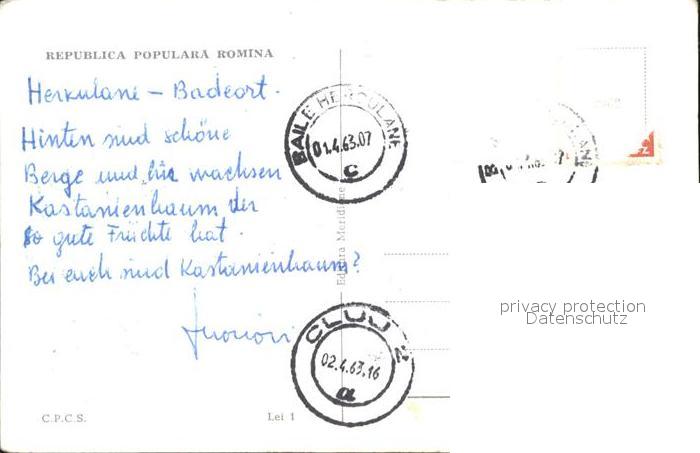 REPUBLICA POPULARĂ ROMÎNA
Herkulane – Badeort.
Hinten sind schöne
Berge und hie wachsen
Kastanienbaum, der
so gute Früchte hat.
Bei euch sind Kastanienbaum?
C.P.C.S.
Lei 1
Editura Meridiane
BĂILE HERCULANE
01.4.63.07
C
CLUJ 2
02.4.63.16
a
privacy protection
Datenschutz